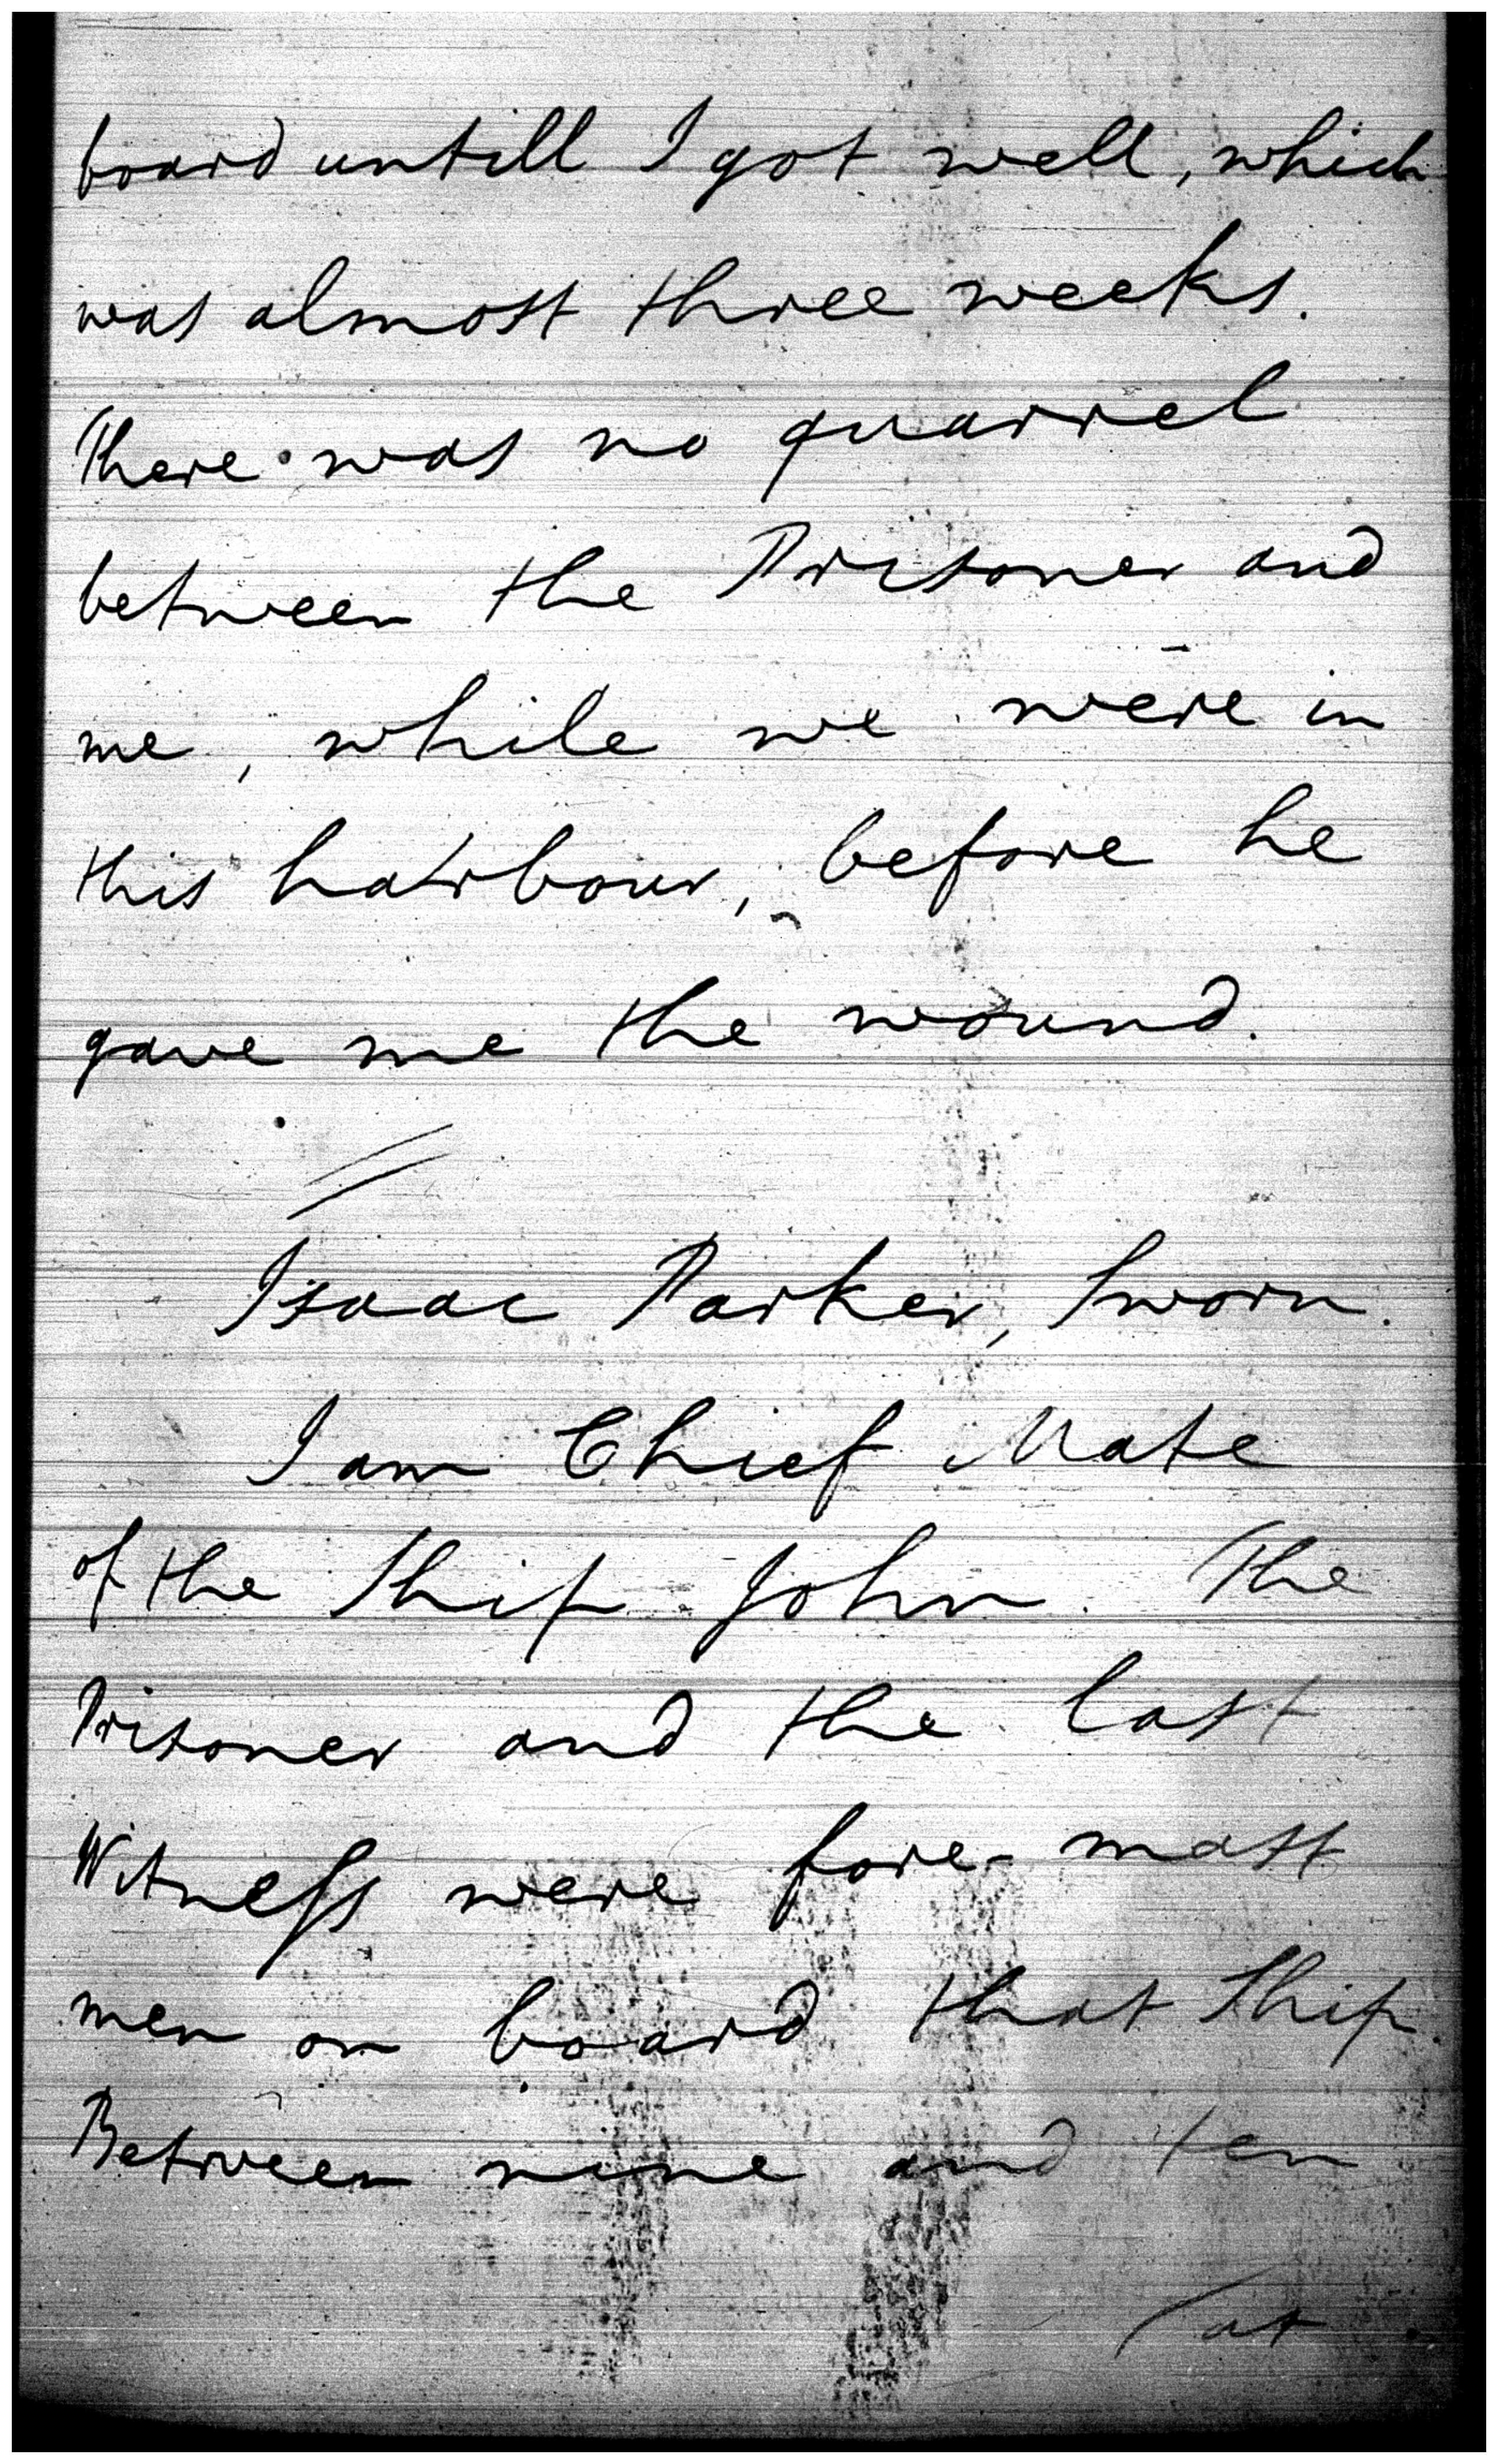 board untill I got well, which
was almost three weeks.
There was no quarrel
between the Prisoner and
me, while we were in
this harbour, before he
gave me the wound.
Isaac Parker, Sworn.
I am Chief Mate
of the Ship John. The
Prisoner and the last
Witness were fore-mast
men on board that Ship.
Between nine and ten
/at